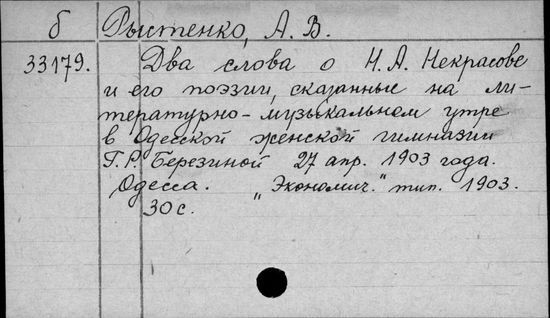 б Рыстенко, А. В.
33179. Два слова о Н. А. Некрасове
и его поэзии, сказанные на ли-
тературно-музыкальном утре
в Одесской женской гимназии
Г. Р. Березиной 27 апр. 1903 года.
Одесса. „Экономич." тип. 1903.
30 с.